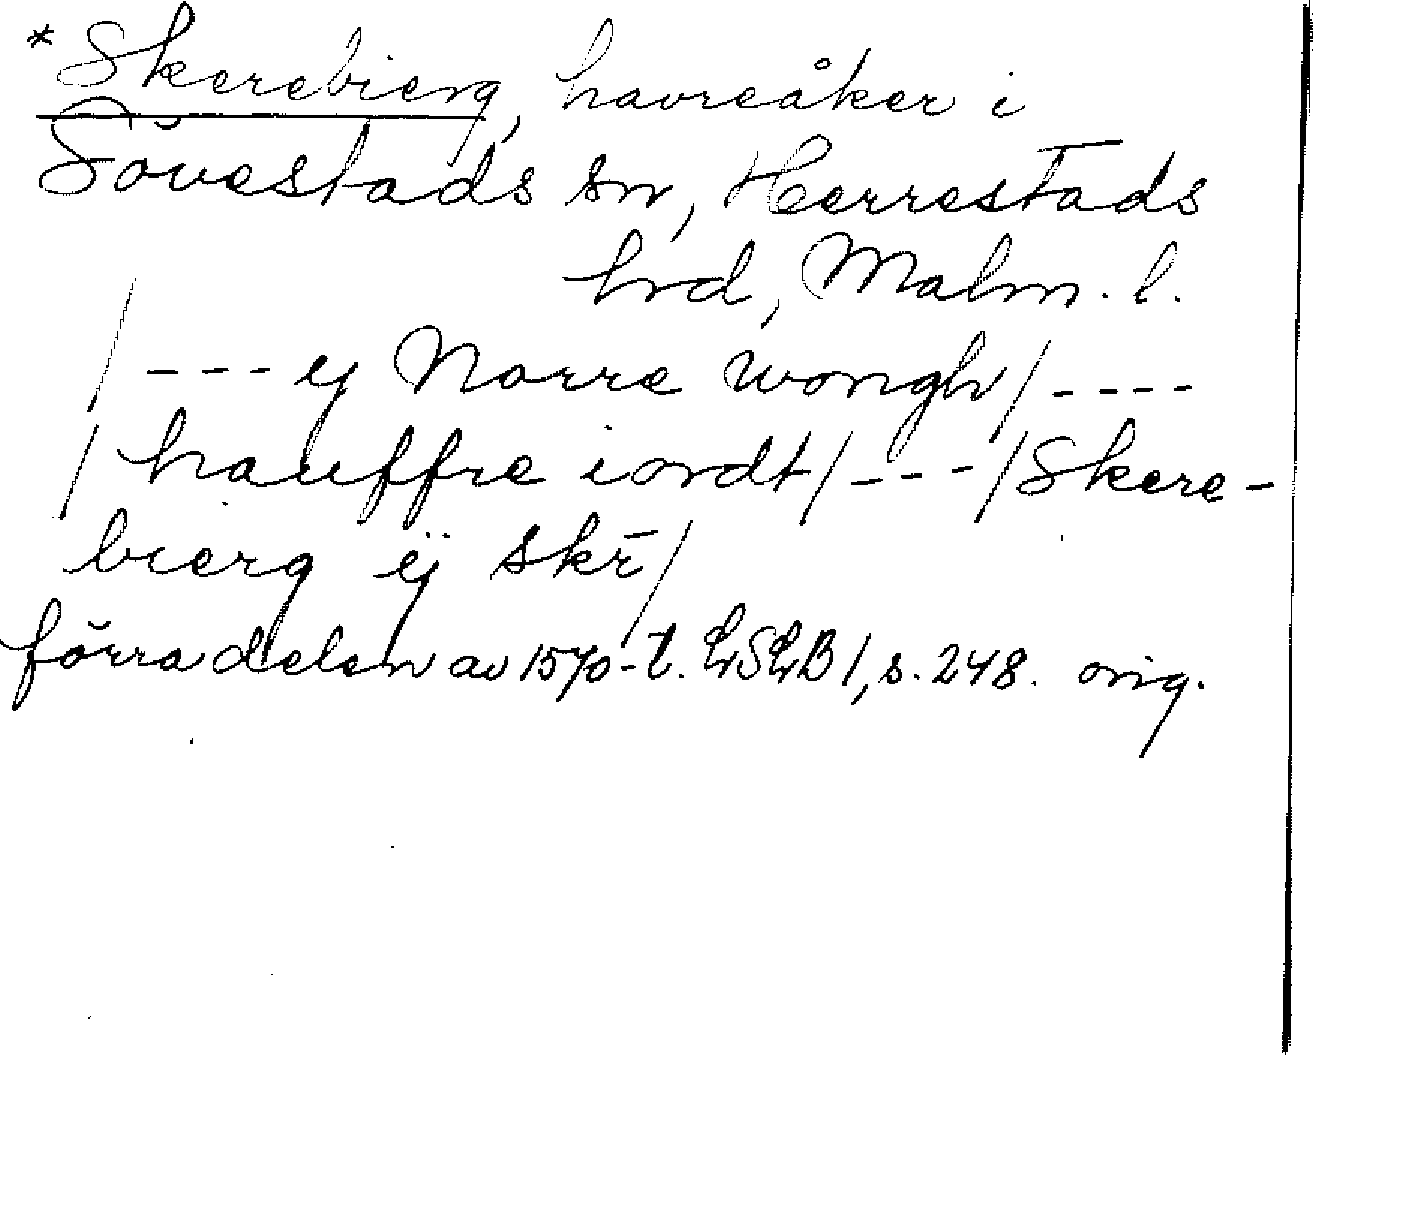 *Skerebierg, havreåker i
Sövestads sn, Herrestads
hrd, Malm. l.
/ --- ej Norre wongh/ ----
/ hauffre iordt/ --- /Skere-
bierg ej skr̄/
förra delen av 1570-t. LrSLrB 1, s. 248. orig.